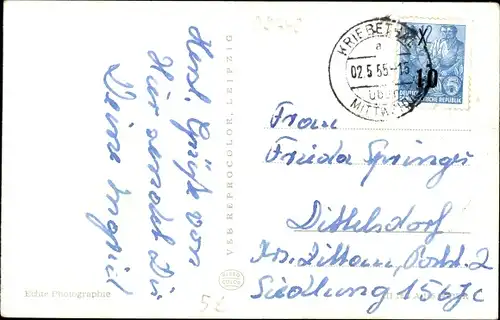 Herzl. Grüße von
Hier sendet Dir
Deine Ingrid
VEB REPROCOLOR, LEIPZIG
Echte Photographie
KRIEBET
a
02.5.55-15
MITTW
10
DEUTSCHE REPUBLIK
Frau
Frieda Springer
Dittelsdorf
Krs. Zittau, Postst. 2
Siedlung 156 7c